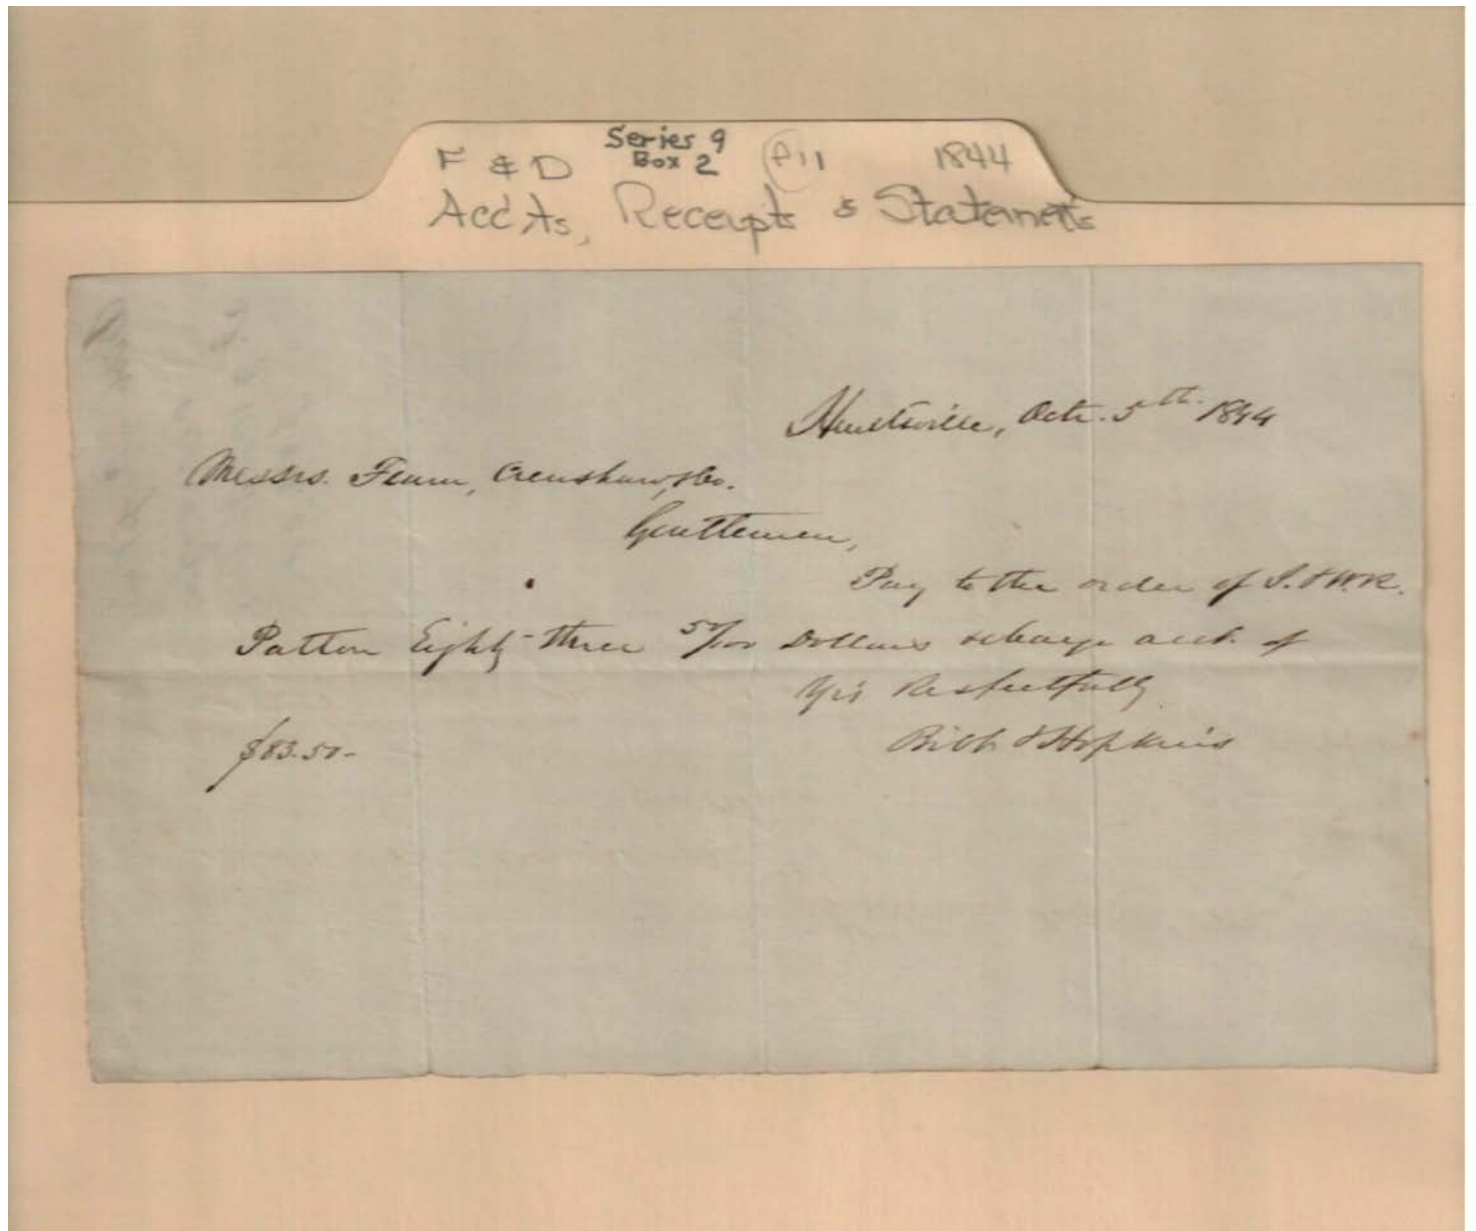 Series 9
F & D Box 2 F11 1844
Acc'ts, Receipts & Statements
Huntsville, Octr. 5th. 1844
Messrs. Fearn, Crenshaw, & Co.
Gentlemen,
Pay to the order of S. & W.R.
Patton Eighty-three 50/100 Dollars & charge acct. of
Yrs Respectfully
$83.50- Bibb & Hopkins